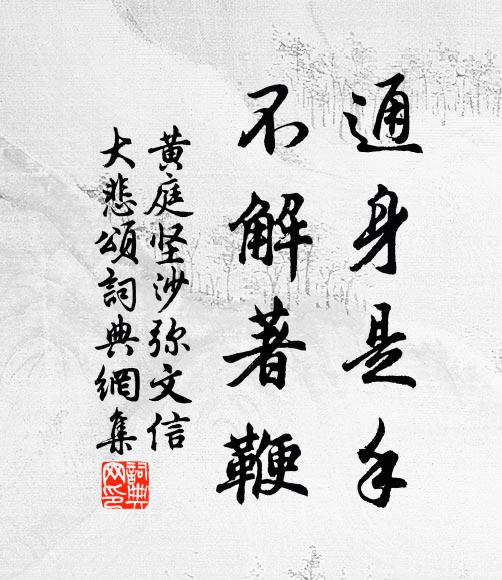 通身是手
不解著鞭
黄庭坚沙弥文信
大悲頌詞典網集
詞典
网印